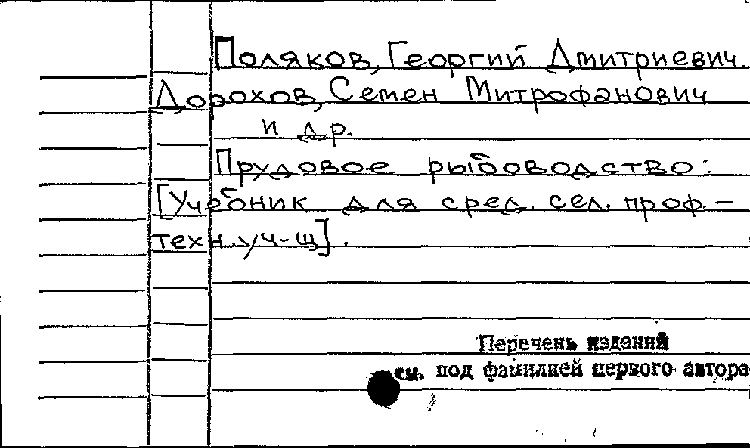 Поляков, Георгий Дмитриевич.
Дорохов, Семен Митрофанович
и др.
Прудовое рыбоводство:
[Учебник для сред. сел. проф-
техн. уч-щ].
Перечень изданий
см. под фамилией первого автора